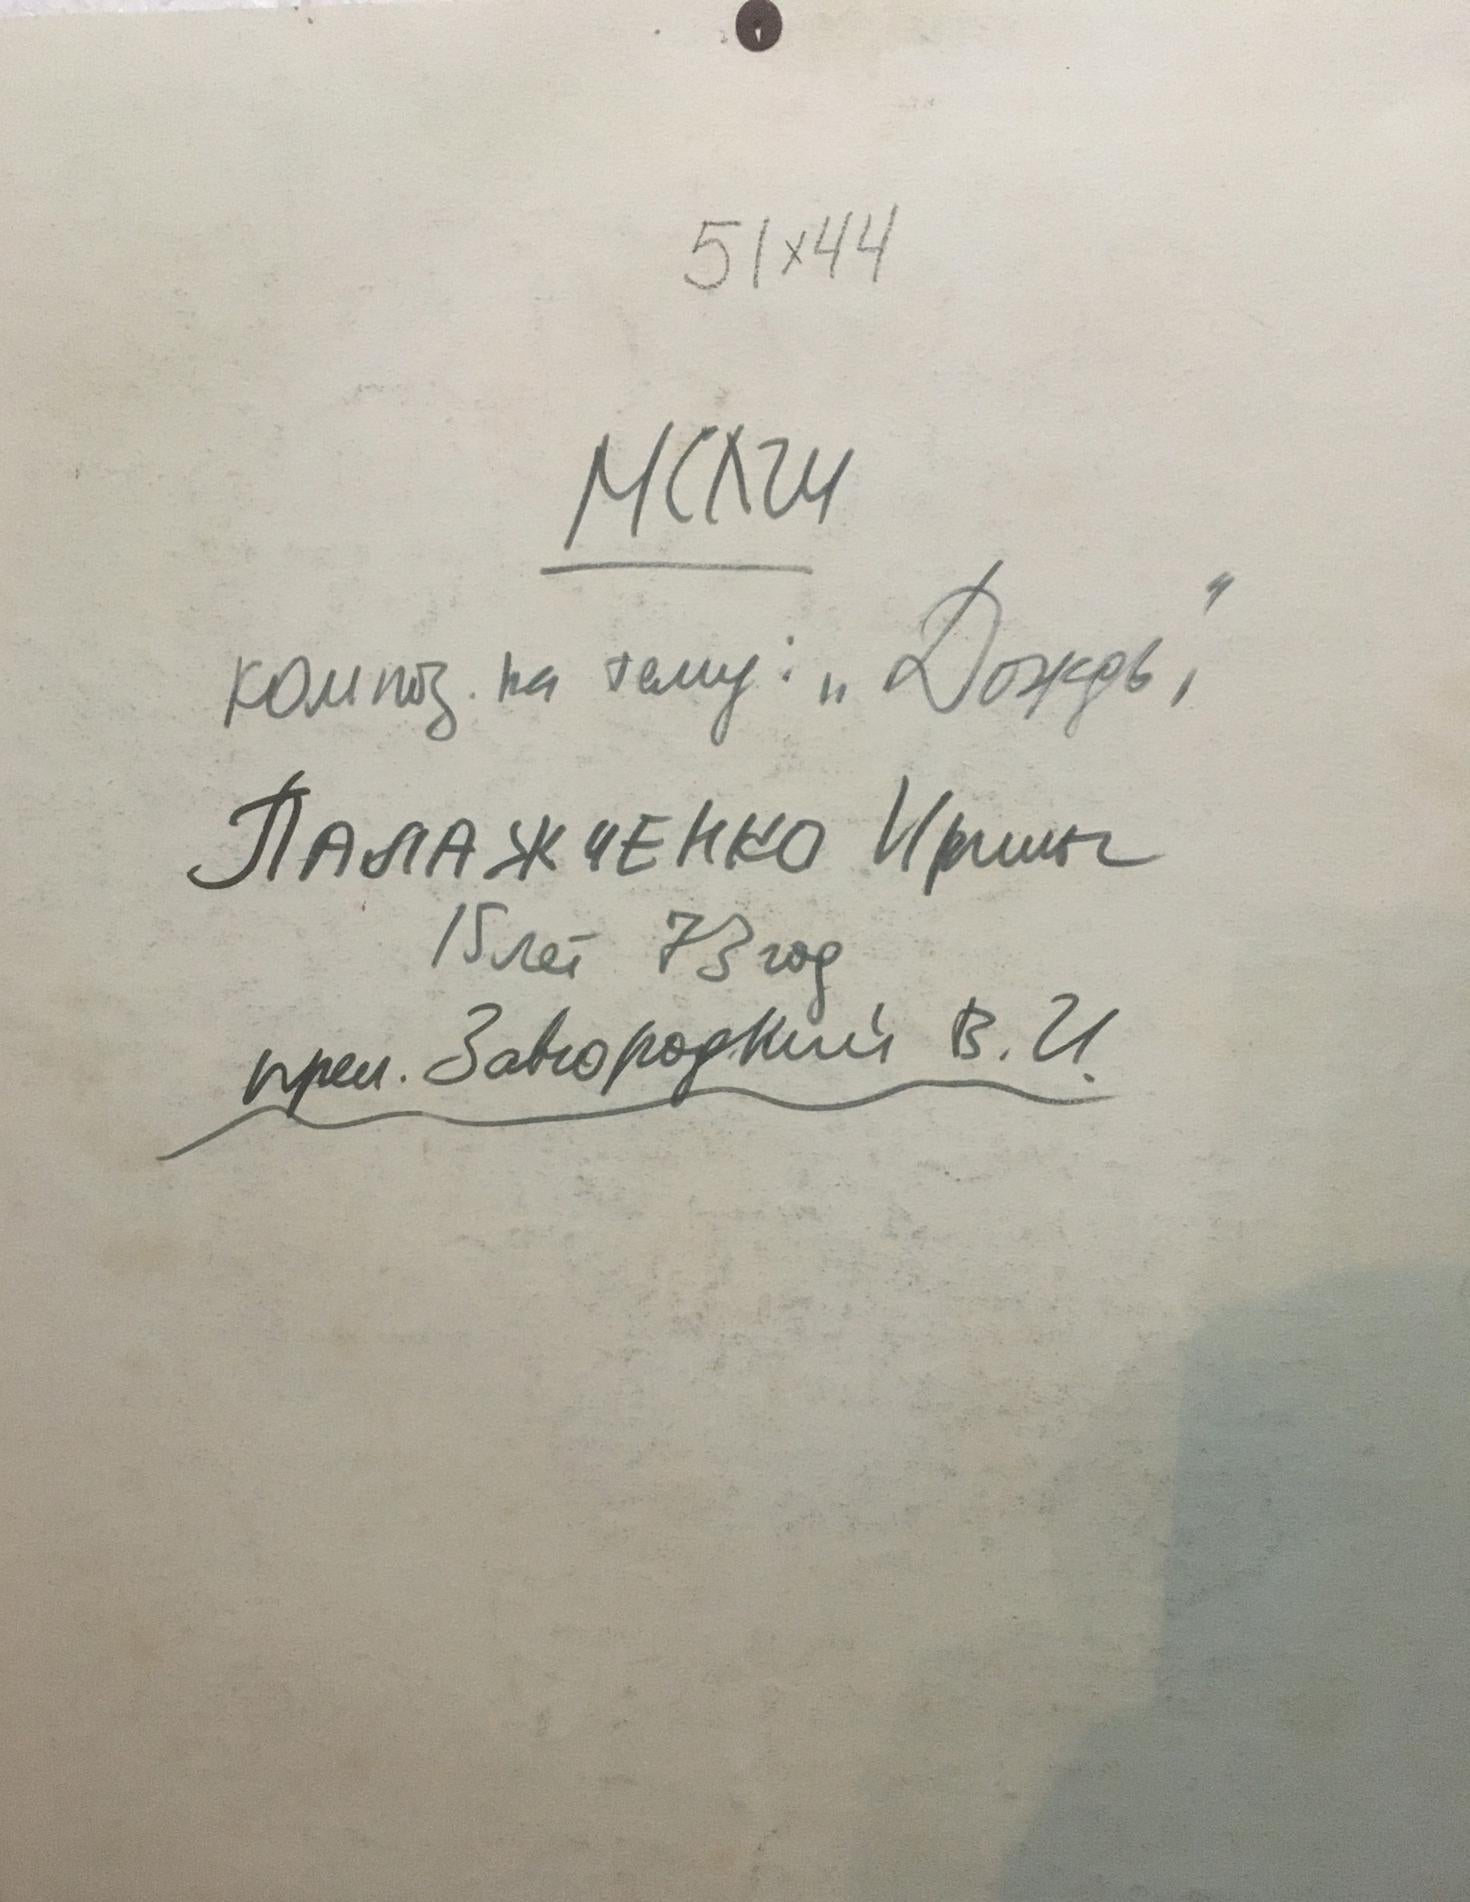 51x44
МСХШ
композ. на тему: „Дождь,"
ПАЛАЖЧЕНКО Ирина
15 лет 73 год
преп. Завгородкий В. И.